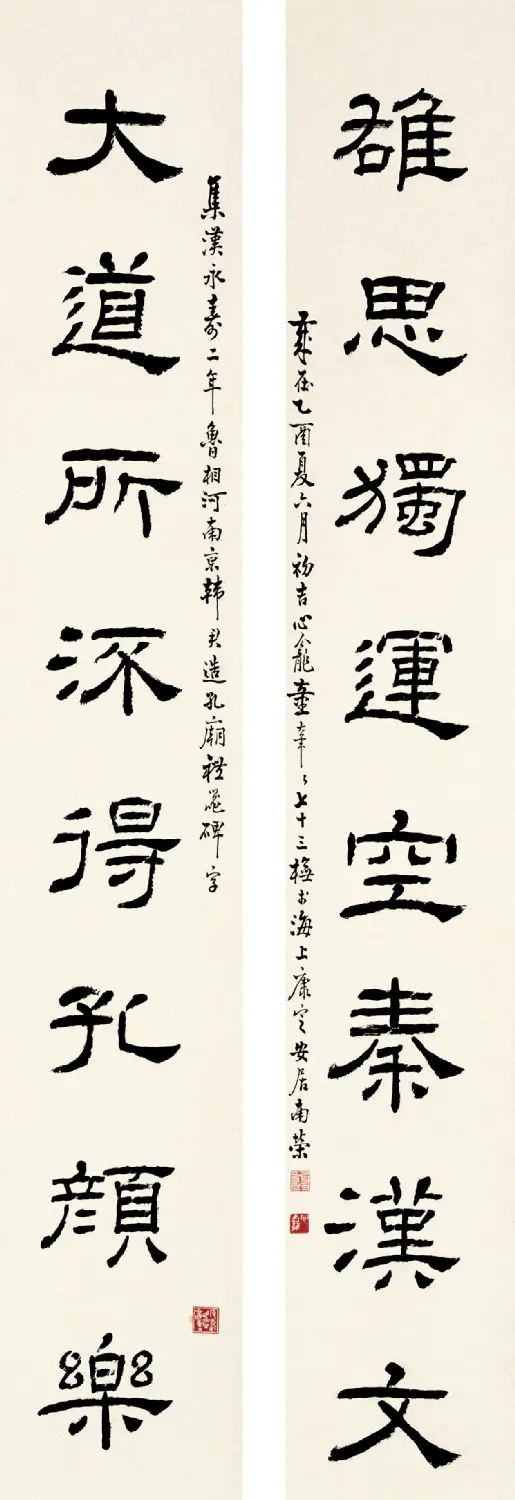 雄思獨運空秦漢文
歲在乙酉夏六月初吉心龕童大年〻七十三於海上康定安居南榮
集漢永壽二年魯相河南京韓君造孔廟禮器碑字
大道所深得孔顏樂